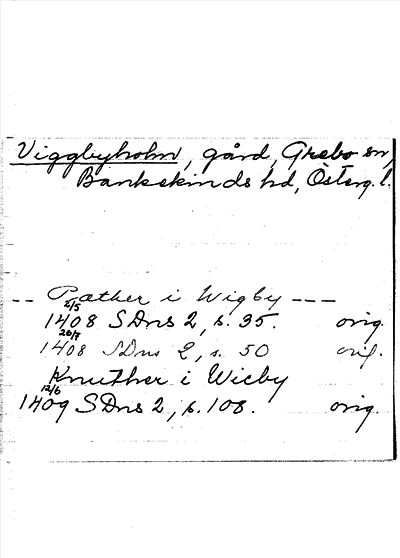 Viggbyholm, gård, Grebo sn,
Bankekinds hd, Österg. l.
-- Pæther i Wigby ---
2/5
1408 SDns 2, s. 35. orig.
20/7
1408 SDns 2, s. 50 orig.
Knuther i Wicby
12/6
1409 SDns 2, s. 108. orig.